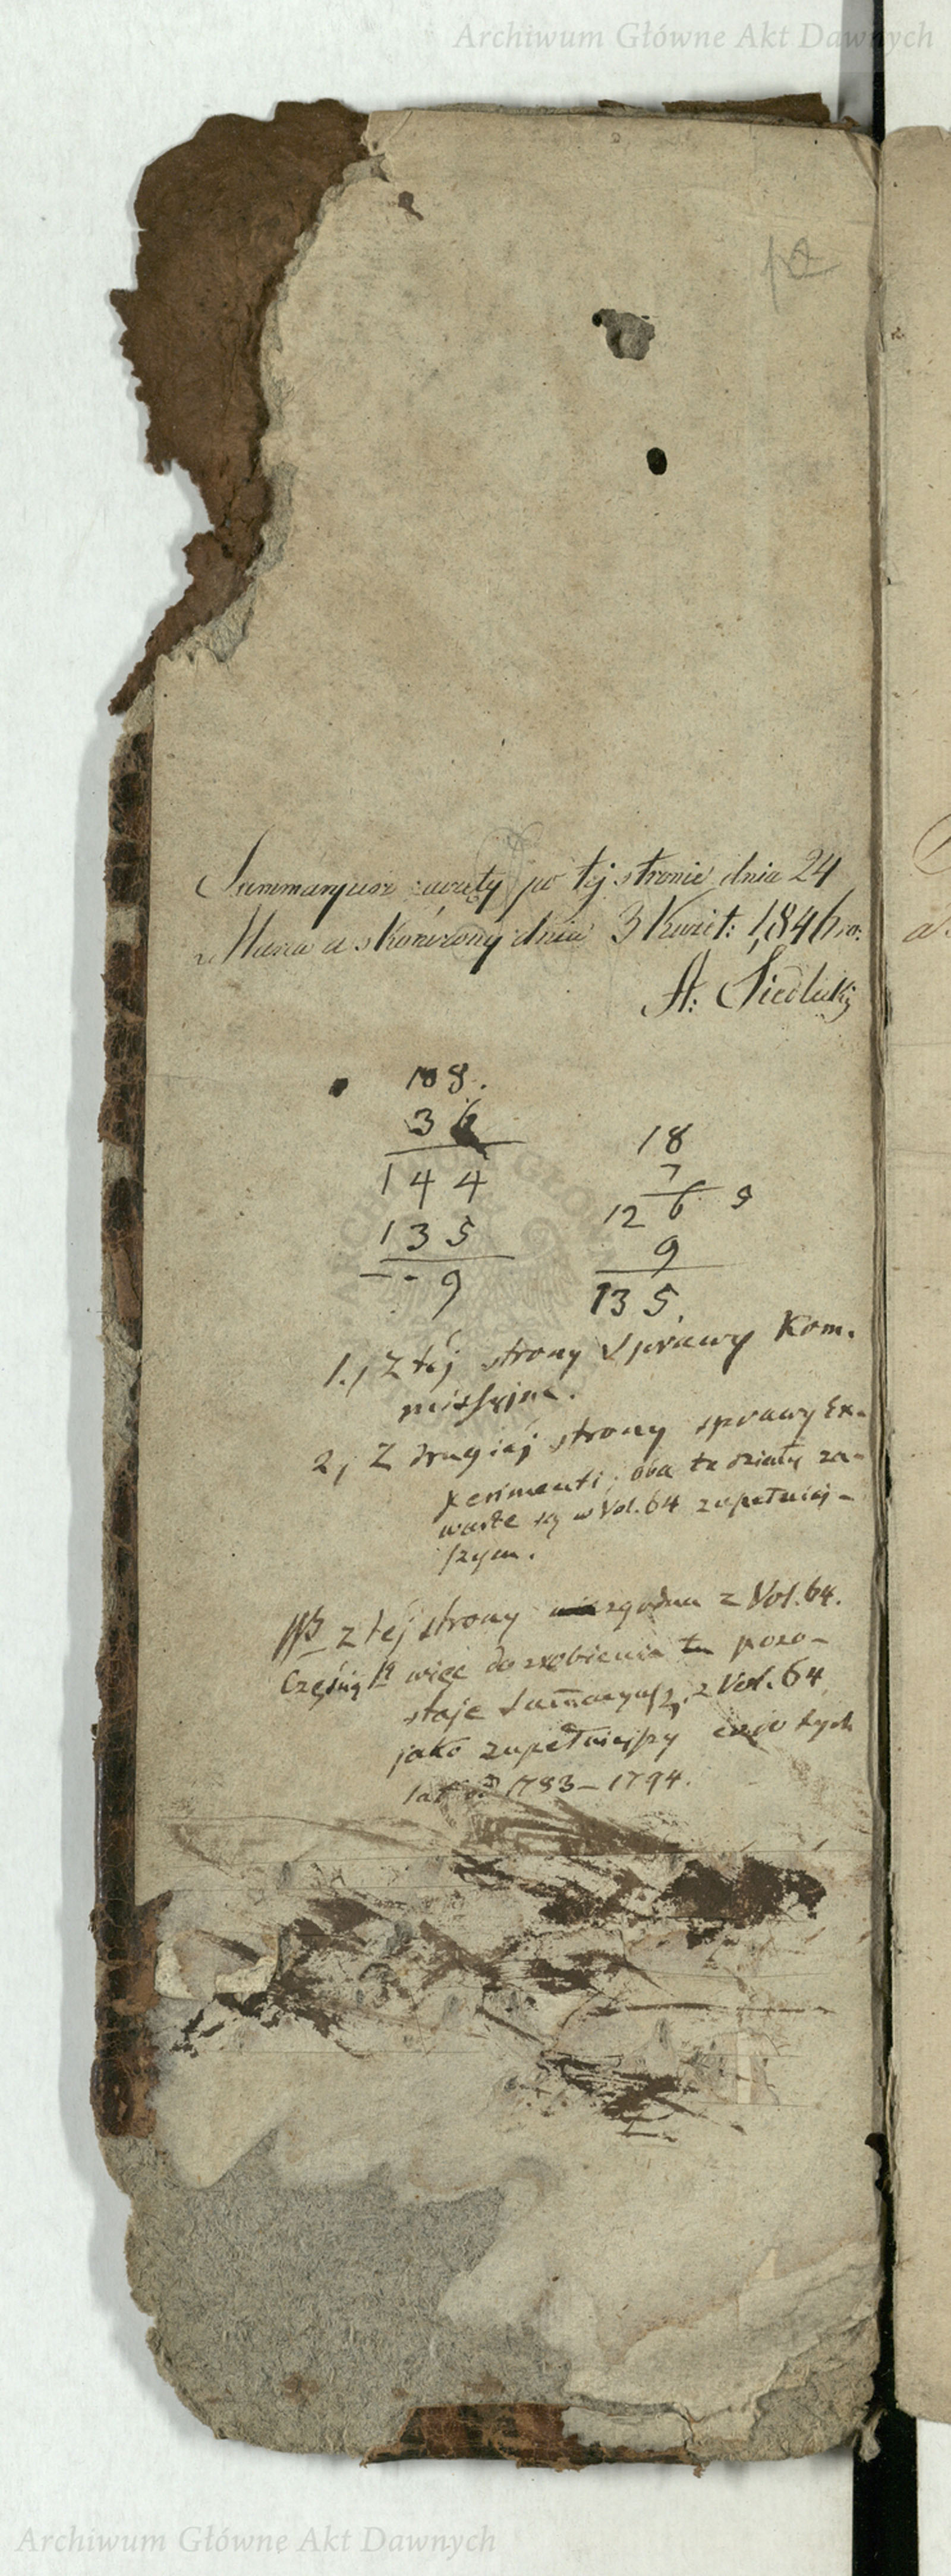 Archiwum Główne Akt Dawnych
Summaryusz zaczęty po tej stronie dnia 24
Marca a skończony dnia 3 Kwiet: 1846 ro:
A: Siedlecki
108.
36
144
135
-- 9
18
7
126 9
9
135.
1., Z tej strony Sprawy Kom.
missyjne.
2, Z drugiej strony sprawy Ex-
perimenti; oba te działy za-
warte są w Vol. 64 zupełniej-
szym.
NB z tej strony zgodna z Vol. 64.
więc do zrobienia tu pozo-
staje Summaryusz, z Vol. 64
jako zupełniejszy tych
lat od 1783 – 1794.
Archiwum Główne Akt Dawnych